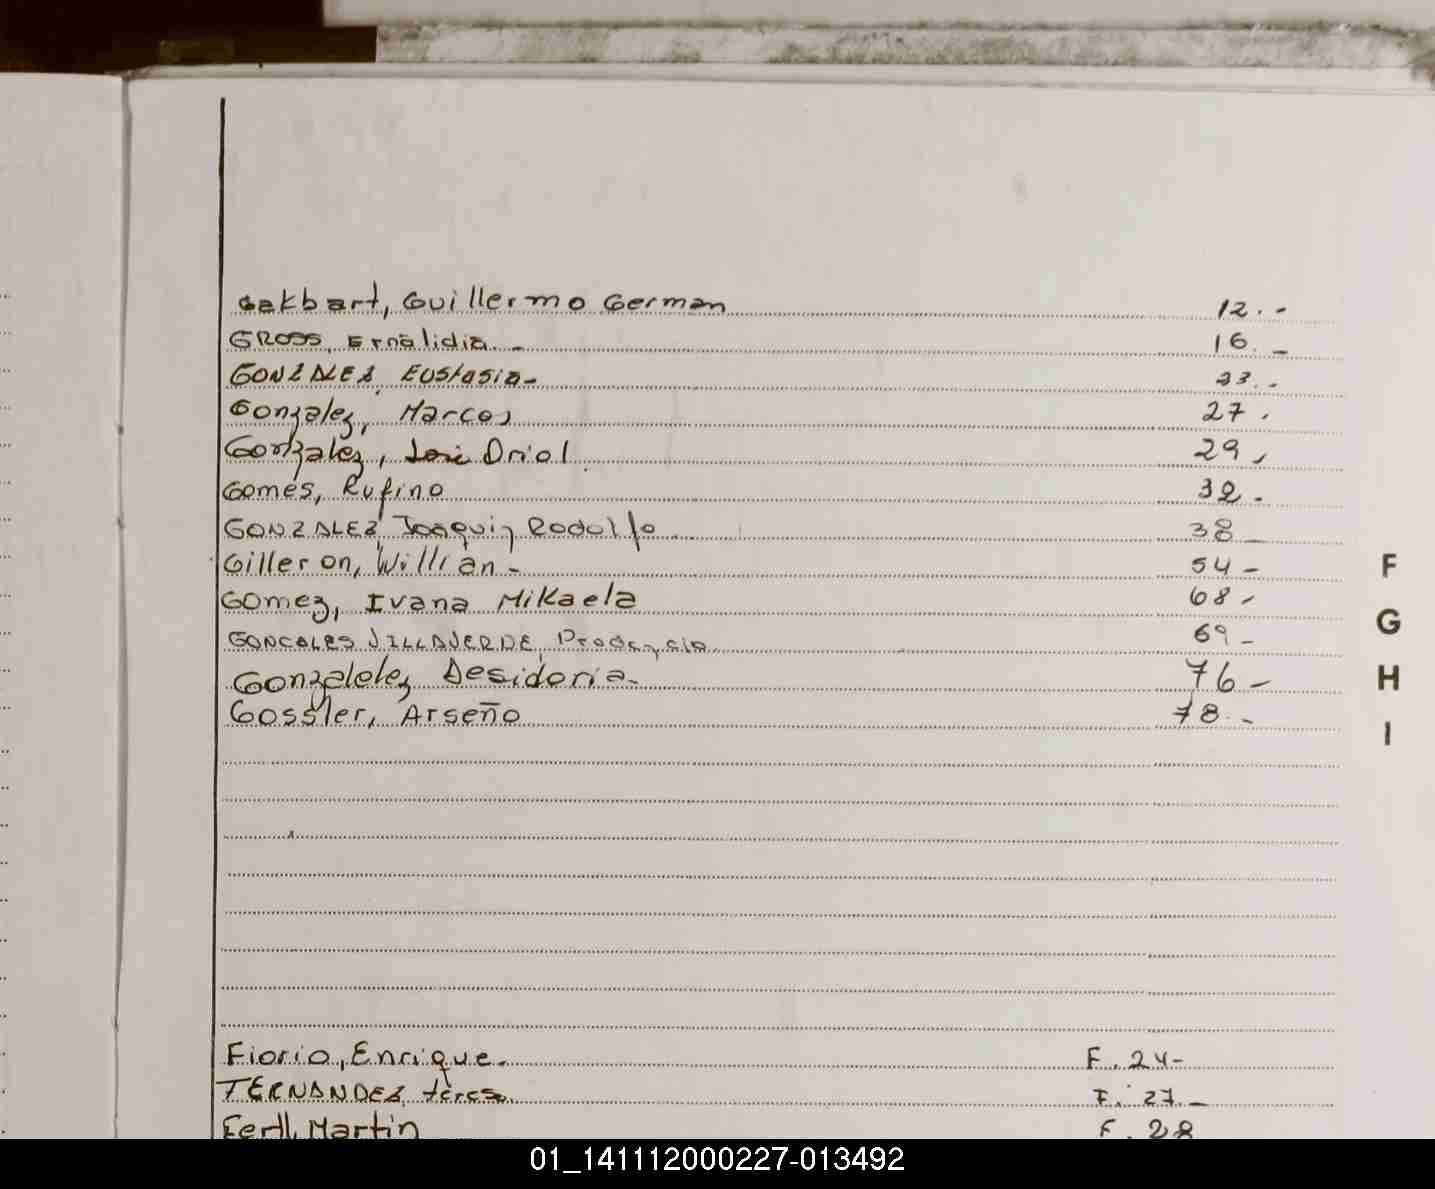 Gakbart, Guillermo German 12.-
GROSS, Ernalidia.- 16.-
GONZALEZ, Eustasia- 23.-
Gonzalez, Marcos 27.
Gonzalez, José Oriol. 29,
Gomes, Rufino 32.
GONZALEZ, Joaquin Rodolfo 38-
Gilleron, Willian- 54-
F
Gomez, Ivana Mikaela 68,
G
GONCALES VILLAVERDE, 69-
Gonzalelez, Desideria- 76-
H
Gossler, Arseño 78.-
I
Fiorio, Enrique. F. 24-
FERNANDEZ, F. 27.-
Ferll, Martin F. 28
01_141112000227-013492